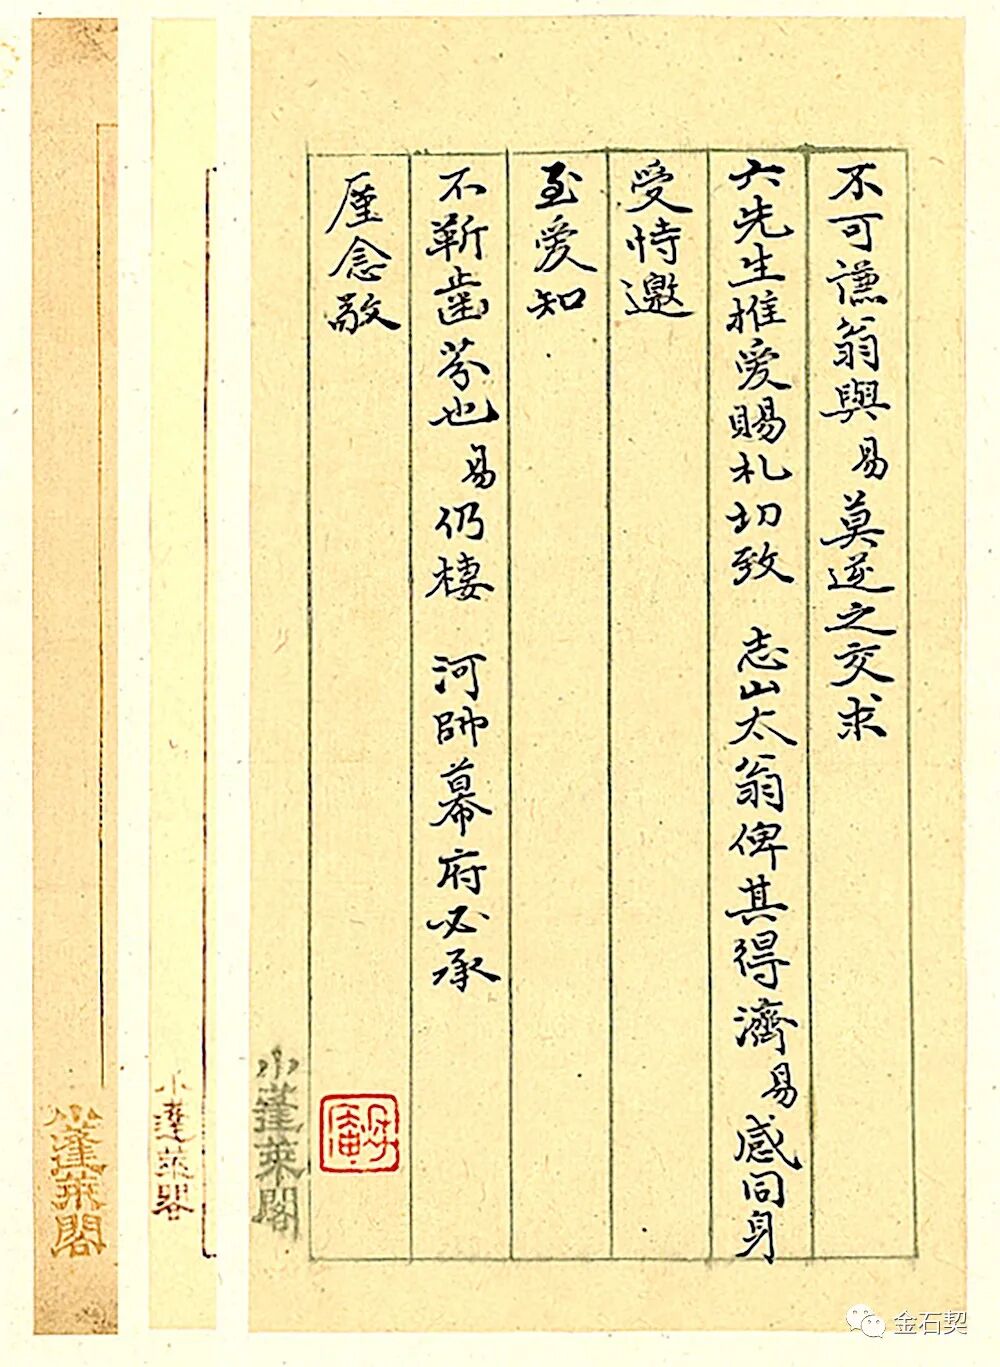 不可謙翁與易莫逆之交求
六先生推愛賜札切致 志山太翁俾其得濟易感同身
受恃邀
至愛知
不靳齒芬也易仍棲 河帥幕府必承
厪念敬
小蓬萊閣
小蓬萊閣
小蓬萊閣
金石契